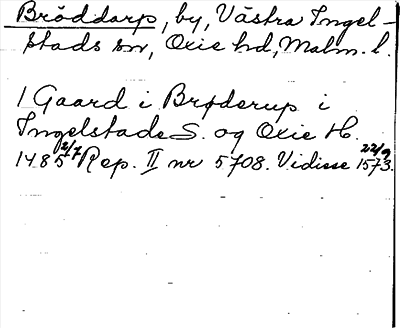 Bröddarp, by, Västra Ingel-
stads sn, Oxie hd, Malm. l.
1 Gaard i Brøderup i
Ingelstade S. og Oxie H.
1485 2/7 Rep. II nr 5708. Vidisse 1573 22/9.